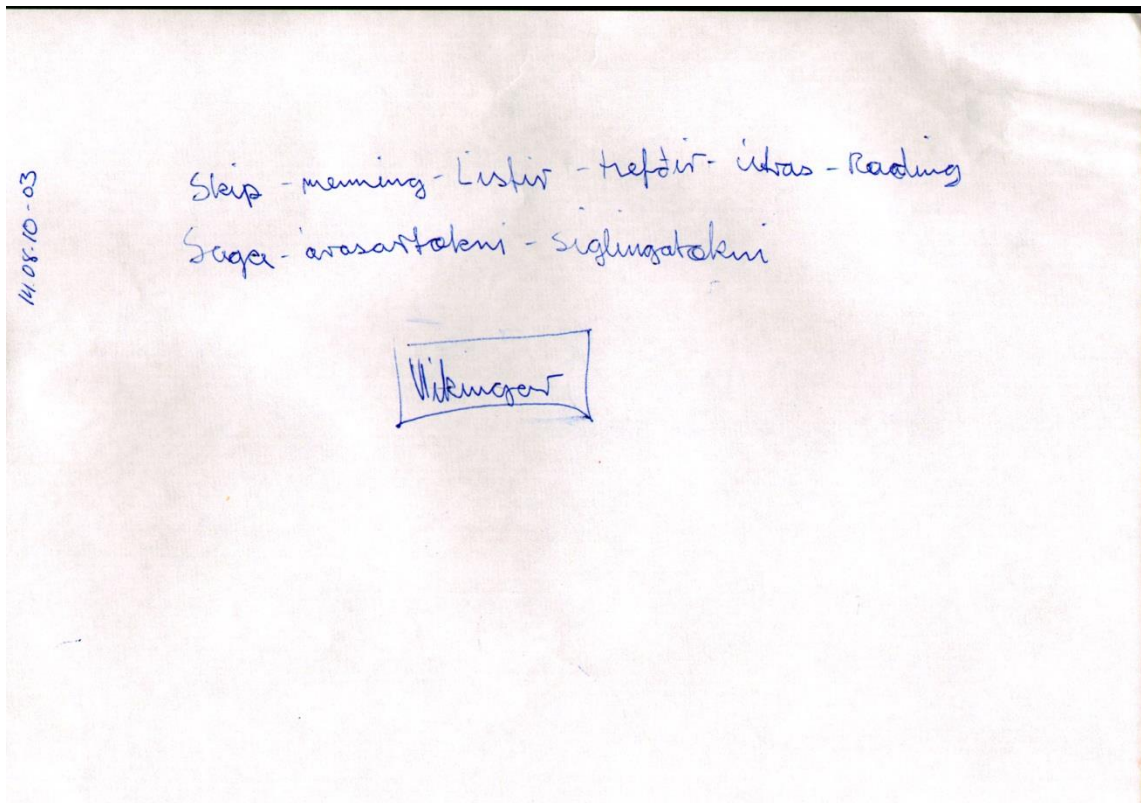 14.08.10-03
Skip - menning - Listir - hefðir - útras - Rading
Saga - árasartækni - siglingatækni
Vikingar